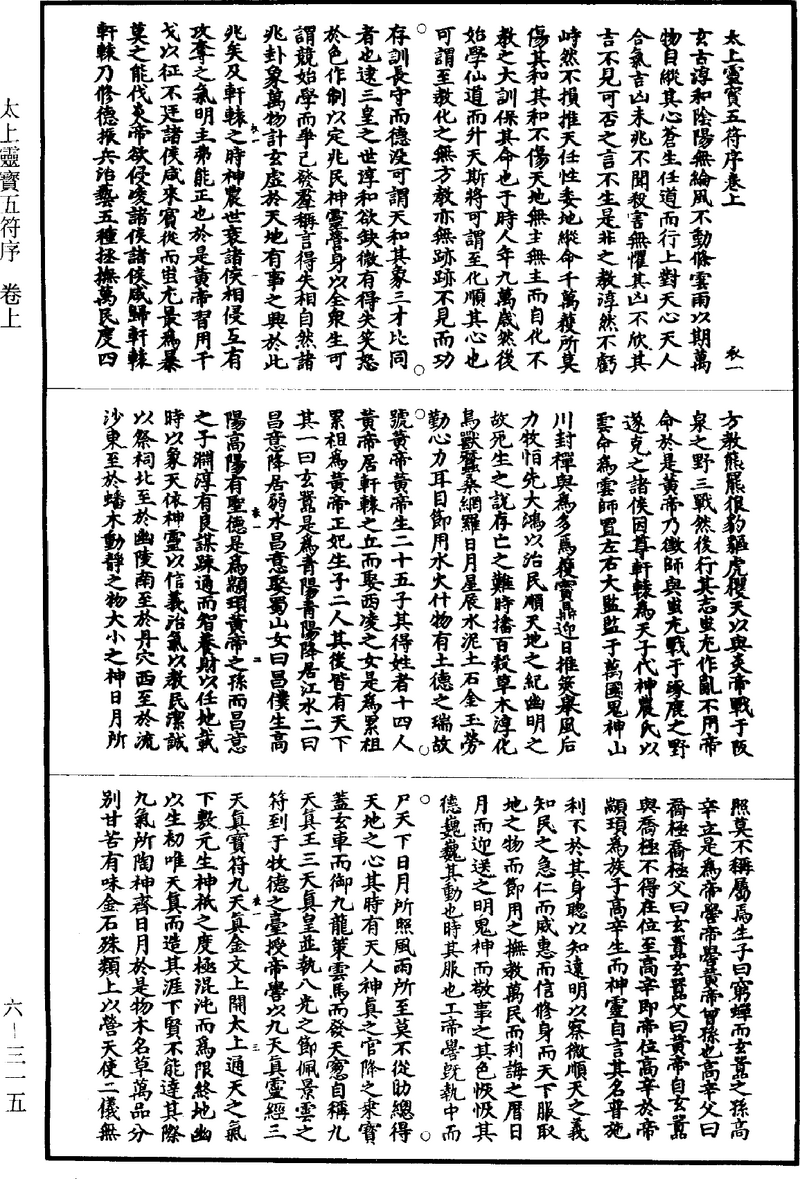 太上靈寶五符序卷上
玄古淳和陰陽無綸風不動條雲雨以期萬
物自縱其心蒼生任道而行上對天心天人
合氣吉凶未兆不聞殺害無懼其凶不欣其
吉不見可否之言不生是非之教淳然不虧
峙然不損推天任性委地縱命千萬獲所莫
傷其和其和不傷天地無主無主而自化不
教之大訓保其命也于時人年九萬歲然後
始學仙道而升天斯將可謂至化順其心也
可謂至教化之無方教亦無跡跡不見而功
存訓長守而德没可謂天和其象三才比同
者也逮三皇之世淳和欲缺微有得失笑怒
於色作制以定兆民神靈營身以全衆生可
謂競始學而爭己發羣稱言得失相自然諸
兆卦象萬物計玄虛於天地有事之興於此
兆矣及軒轅之時神農世衰諸侯相侵互有
攻奪之氣明主弗能正也於是黃帝習用干
戈以征不廷諸侯咸來賓從而蚩尤最為暴
莫之能伐炎帝欲侵凌諸侯諸侯咸歸軒轅
軒轅乃修德振兵治藝五種拯撫萬民度四
方教熊羆狼豹貙虎攖天以與炎帝戰于阪
泉之野三戰然後行其志蚩尤作亂不用帝
命於是黃帝乃徵師與蚩尤戰于涿鹿之野
遂克之諸侯因尊軒轅為天子代神農氏以
雲命為雲師置左右大監監于萬國鬼神山
川封禪與為多焉獲寶鼎迎日推筴舉風后
力牧怕先大鴻以治民順天地之紀幽明之
故死生之說存亡之難時播百穀草木淳化
鳥獸蠶桑網羅日月星辰水泥土石金玉勞
勤心力耳目節用水火什物有土德之瑞故
號黃帝黃帝生二十五子其得姓者十四人
黃帝居軒轅之丘而娶西凌之女是為累祖
累祖為黃帝正妃生子二人其後皆有天下
其一曰玄囂是為青陽青陽降居江水二曰
昌意降居弱水昌意娶蜀山女曰昌僕生高
陽高陽有聖德是為顓頊黃帝之孫而昌意
之子淵淳有良謀疎通而智養財以任地載
時以象天依神靈以信義治氣以教民潔誠
以祭祠北至於幽陵南至於丹穴西至於流
沙東至於蟠木動靜之物大小之神日月所
照莫不稱屬焉生子曰窮蟬而玄囂之孫高
辛立是為帝嚳帝嚳黃帝曾孫也高辛父曰
喬極喬極父曰玄囂玄囂父曰黃帝自玄囂
與喬極不得在位至高辛即帝位高辛於帝
顓頊為族子高辛生而神靈自言其名普施
利下於其身聰以知遠明以察微順天之義
知民之急仁而威惠而信修身而天下服取
地之物而節用之撫教萬民而利誨之曆日
月而迎送之明鬼神而敬事之其色恢恢其
德巍巍其動也時其服也工帝嚳旣執中而
尸天下日月所照風雨所至莫不從助總得
天地之心其時有天人神真之官降之乘寶
蓋玄車而御九龍策雲馬而發天窓自稱九
天真王三天真皇並執八光之節佩景雲之
符到于牧德之臺授帝嚳以九天真靈經三
天真寶符九天真金文上開太上通天之氣
下敷元生神祇之度極混沌而為限終地幽
以生初唯天真而造其涯下賢不能達其際
九氣所陶神齊日月於是物木名草萬品分
別甘苦有味金石殊類上以營天使二儀無
衣一
衣一
衣一 二
衣一 三
太上靈寶五符序 卷上
六—三一五